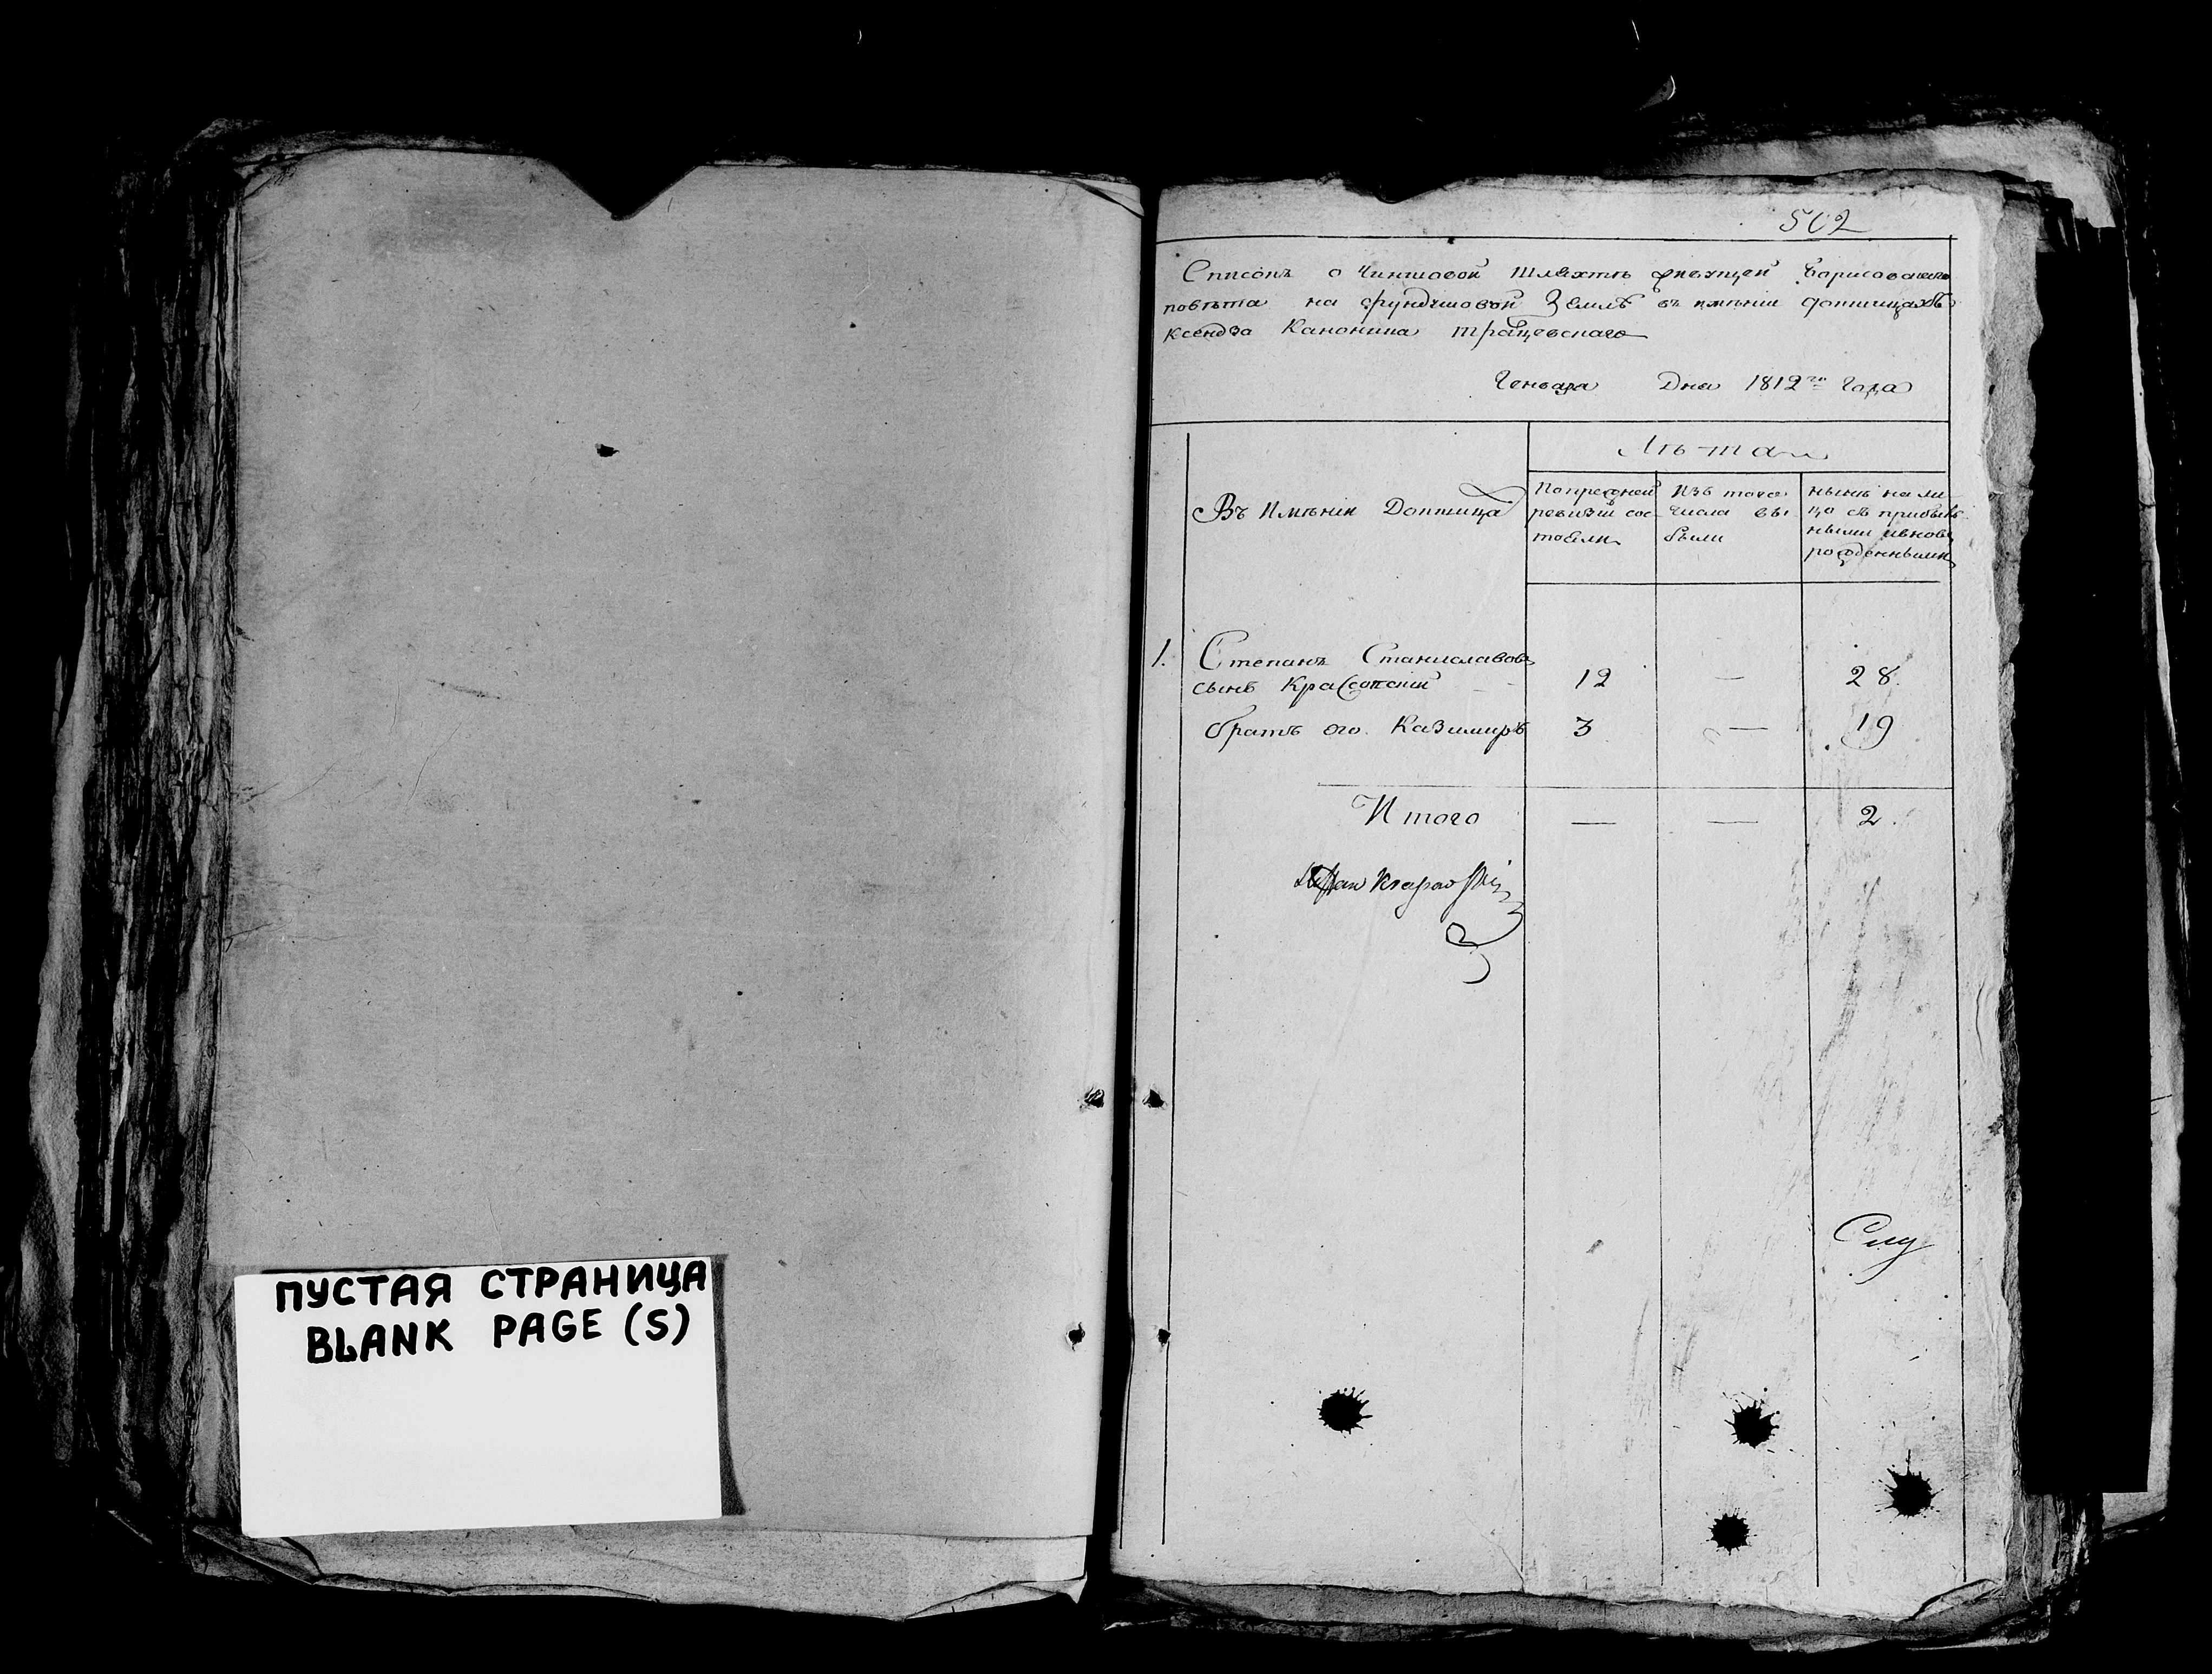 ПУСТАЯ СТРАНИЦА
BLANK PAGE (S)
502
Списокъ о Чиншовой Шляхтѣ Борисовскаго
повѣта на фундушовой Землѣ въ имѣніи
ксендза Каноника
Генваря Дня 1812го Года
Лѣта
Въ Имѣніи
По прежней
ревизіи сос-
тояли
Изъ того
числа вы
были
нынѣ на ли
цо съ прибыв
ными и вновь
рожденными
1. Степанъ Станиславовъ
сынъ 12 — 28
братъ его Казимиръ 3 — 19
Итого — — 2